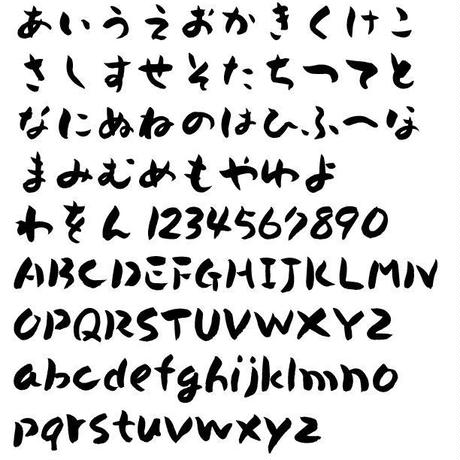 あいうえおかきくけこ
さしすせそたちつてと
なにぬねのはひふへほ
まみむめもやゆよ
わをん 1234567890
ABCDEFGHIJKLMN
OPQRSTUVWXYZ
abcdefghijklmno
pqrstuvwxyz